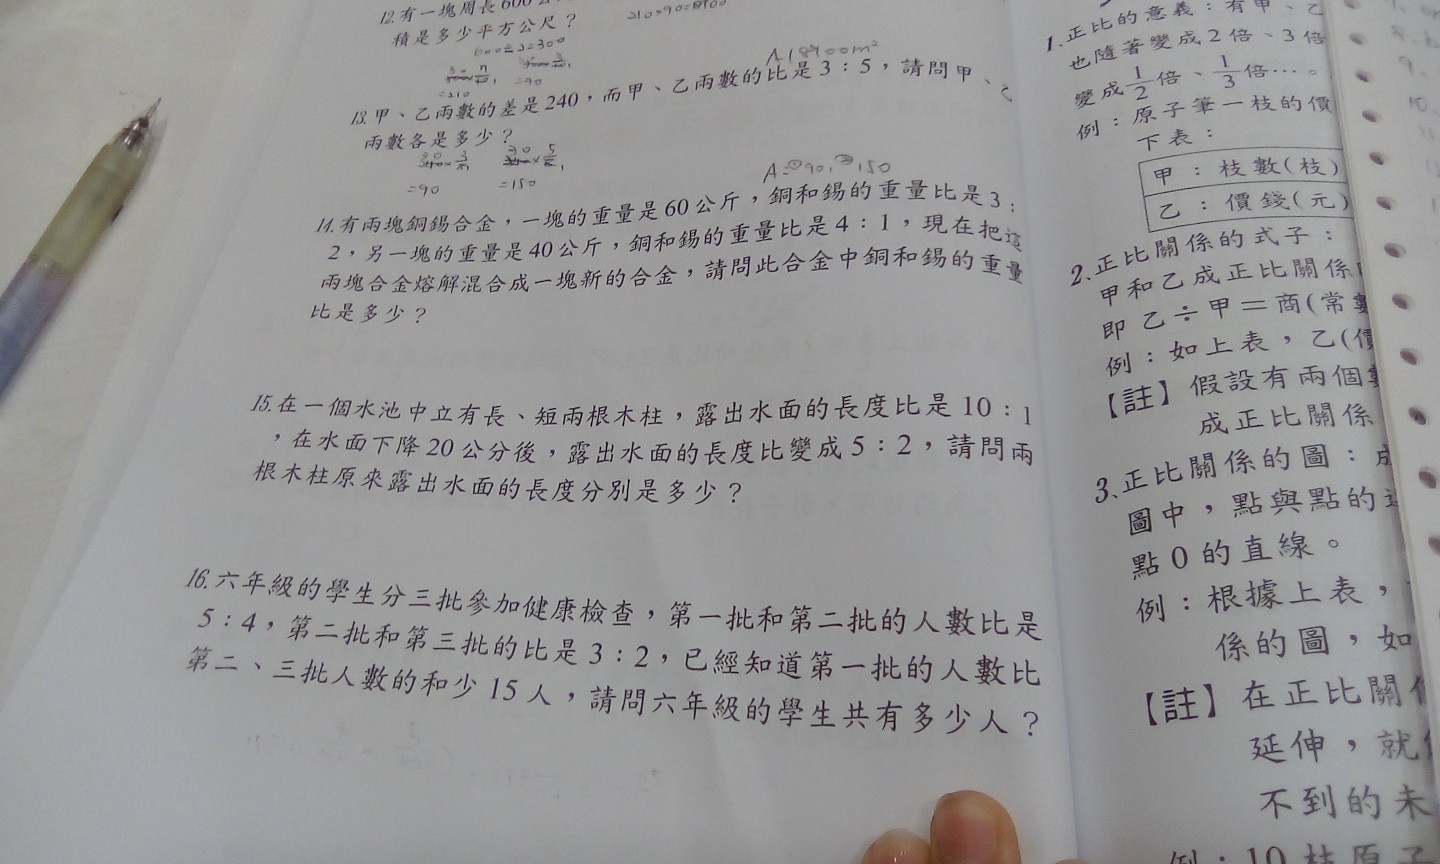 12.有一塊周長600公
積是多少平方公尺？
210×90=8900
600÷2=300
=210
=90
A:18900m²
13.甲、乙兩數的差是240，而甲、乙兩數的比是3：5，請問甲、乙
兩數各是多少？
=90
=150
A=①90,②150
14.有兩塊銅錫合金，一塊的重量是60公斤，銅和錫的重量比是3：
2，另一塊的重量是40公斤，銅和錫的重量比是4：1，現在把這
兩塊合金熔解混合成一塊新的合金，請問此合金中銅和錫的重量
比是多少？
15.在一個水池中立有長、短兩根木柱，露出水面的長度比是10：1
，在水面下降20公分後，露出水面的長度比變成5：2，請問兩
根木柱原來露出水面的長度分別是多少？
16.六年級的學生分三批參加健康檢查，第一批和第二批的人數比是
5：4，第二批和第三批的比是3：2，已經知道第一批的人數比
第二、三批人數的和少15人，請問六年級的學生共有多少人？
1.正比的意義：有甲、乙
也隨著變成2倍、3倍
變成1/2倍、1/3倍…。
例：原子筆一枝的價
下表：
甲：枝數(枝)
乙：價錢(元)
2.正比關係的式子：
甲和乙成正比關係
即 乙÷甲＝商(常數
例：如上表，乙(價
【註】假設有兩個
成正比關係
3.正比關係的圖：成
圖中，點與點的連
點0的直線。
例：根據上表，
係的圖，如
【註】在正比關係
延伸，就
不到的未
例：10枝原子